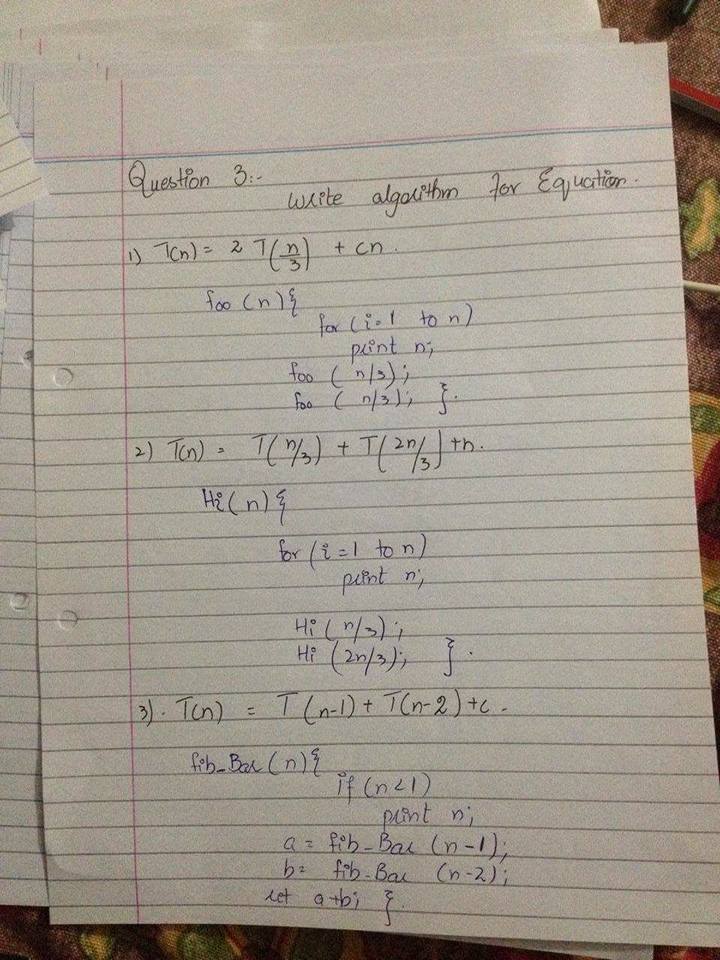 Question 3:-
Write algorithm for Equation.
1) T(n) = 2 T(n/3) + cn.
foo (n){
for (i=1 to n)
print n;
foo ( n/3);
foo ( n/3); }.
2) T(n) = T(n/3) + T(2n/3) + n.
Hi(n){
for (i=1 to n)
print n;
Hi (n/3);
Hi (2n/3); }.
3). T(n) = T(n-1) + T(n-2) + c.
fib_Bar (n){
if (n<1)
print n;
a = fib_Bar (n-1);
b= fib_Bar (n-2);
ret a+b; }.